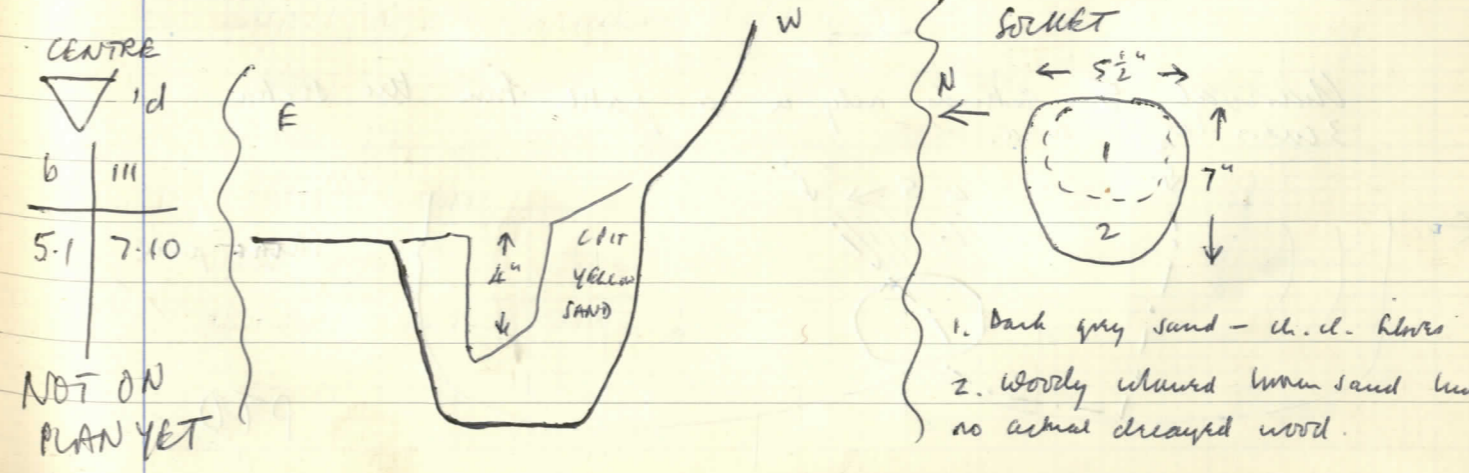 CENTRE
'd
b III
5.1 7.10
NOT ON
PLAN YET
E
W
4"
YELLOW
SAND
SOCKET
N
5 1/2"
1
7"
2
1. Dark grey sand - ch. cl.
2. Woody coloured brown sand but
no actual decayed wood.